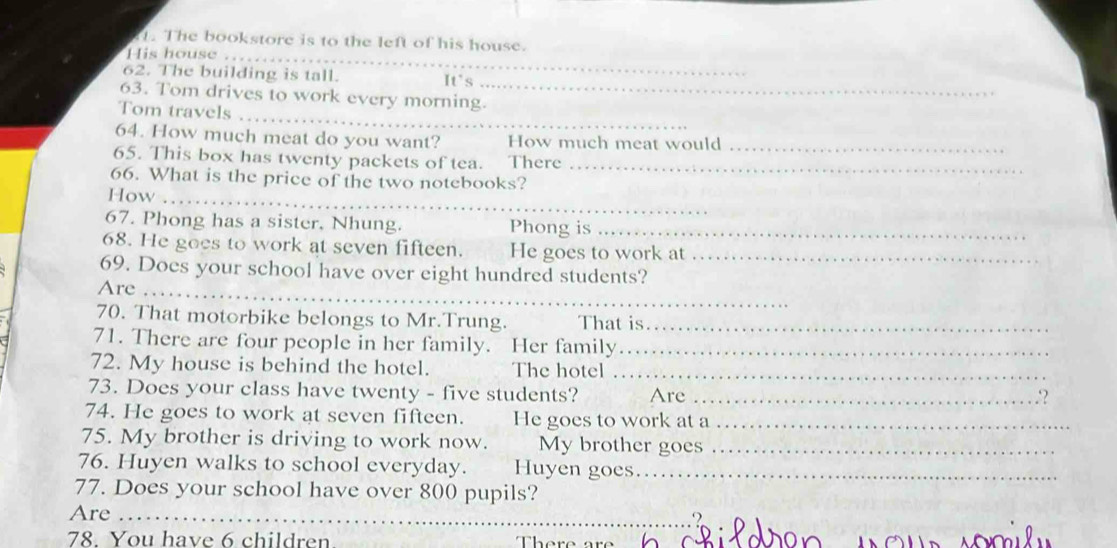 1. The bookstore is to the left of his house.
His house ..............................
62. The building is tall. It's ..............................
63. Tom drives to work every morning.
Tom travels ..............................
64. How much meat do you want? How much meat would ..............................
65. This box has twenty packets of tea. There ..............................
66. What is the price of the two notebooks?
How ..............................
67. Phong has a sister, Nhung. Phong is ..............................
68. He goes to work at seven fifteen. He goes to work at ..............................
69. Does your school have over eight hundred students?
Are ..............................
70. That motorbike belongs to Mr.Trung. That is..............................
71. There are four people in her family. Her family..............................
72. My house is behind the hotel. The hotel ..............................
73. Does your class have twenty - five students? Are ..............................?
74. He goes to work at seven fifteen. He goes to work at a ..............................
75. My brother is driving to work now. My brother goes ..............................
76. Huyen walks to school everyday. Huyen goes..............................
77. Does your school have over 800 pupils?
Are ..............................?
78. You have 6 children. There are children your family